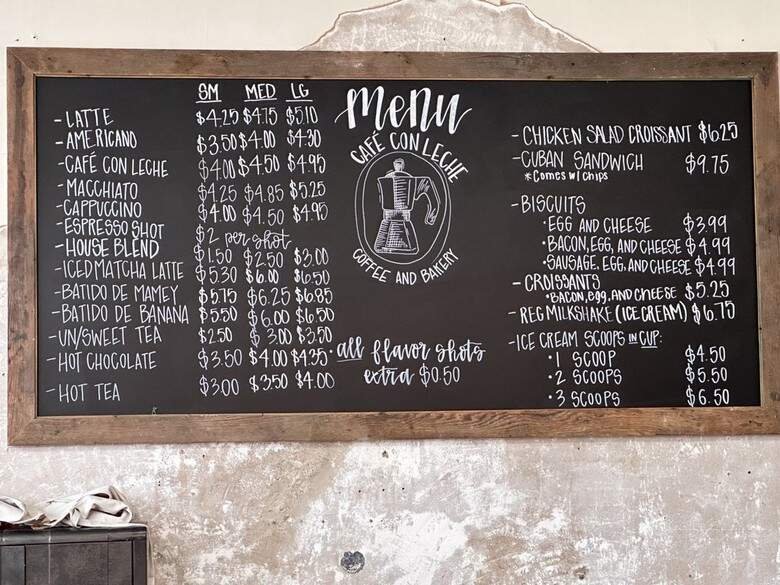 SM MED LG
- LATTE $4.25 $4.75 $5.10
- AMERICANO $3.50 $4.00 $4.30
- CAFÉ CON LECHE $4.00 $4.50 $4.95
- MACCHIATO $4.25 $4.85 $5.25
- CAPPUCCINO $4.00 $4.50 $4.95
- ESPRESSO SHOT $2 per shot
- HOUSE BLEND $1.50 $2.50 $3.00
- ICED MATCHA LATTE $5.30 $6.00 $6.50
- BATIDO DE MAMEY $5.75 $6.25 $6.85
- BATIDO DE BANANA $5.50 $6.00 $6.50
- UN/SWEET TEA $2.50 $3.00 $3.50
- HOT CHOCOLATE $3.50 $4.00 $4.35
- HOT TEA $3.00 $3.50 $4.00
Menu
CAFÉ CON LECHE
COFFEE AND BAKERY
• all flavor shots
extra $0.50
- CHICKEN SALAD CROISSANT $6.25
- CUBAN SANDWICH $9.75
*Comes w/chips
- BISCUITS
• EGG AND CHEESE $3.99
• BACON, EGG, AND CHEESE $4.99
• SAUSAGE, EGG, AND CHEESE $4.99
- CROISSANTS
• BACON, EGG, AND CHEESE $5.25
- REG MILKSHAKE (ICE CREAM) $6.75
- ICE CREAM SCOOPS IN CUP:
• 1 SCOOP $4.50
• 2 SCOOPS $5.50
• 3 SCOOPS $6.50